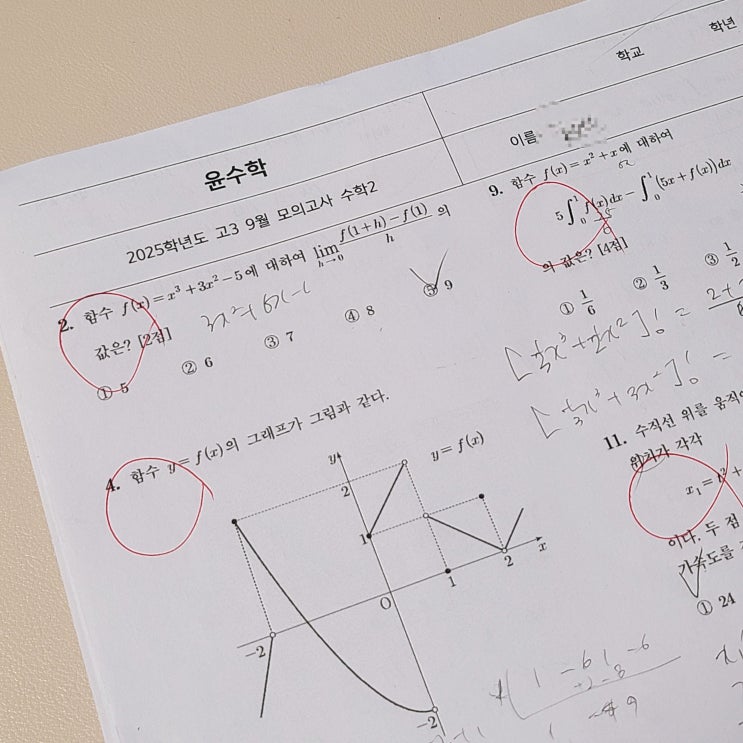 학교
학년
이름
윤수학
2025학년도 고3 9월 모의고사 수학2
2. 함수 f(x)=x³+3x²−5에 대하여 lim h→0 f(1+h)−f(1)/h 의
값은? [2점]
① 5 ② 6 ③ 7 ④ 8 ⑤ 9
4. 함수 y=f(x)의 그래프가 그림과 같다.
y
y=f(x)
2
1
O
1
2
x
−2
−2
9. 함수 f(x)=x²+x에 대하여
5∫₀¹ f(x)dx−∫₀¹ (5x+f(x))dx
의 값은? [4점]
① 1/6 ② 1/3 ③ 1/2
[1/3x³+1/2x²]¹₀ =
11. 수직선 위를 움직
위치가 각각
x₁=t²+
이다. 두 점
가속도를
① 24